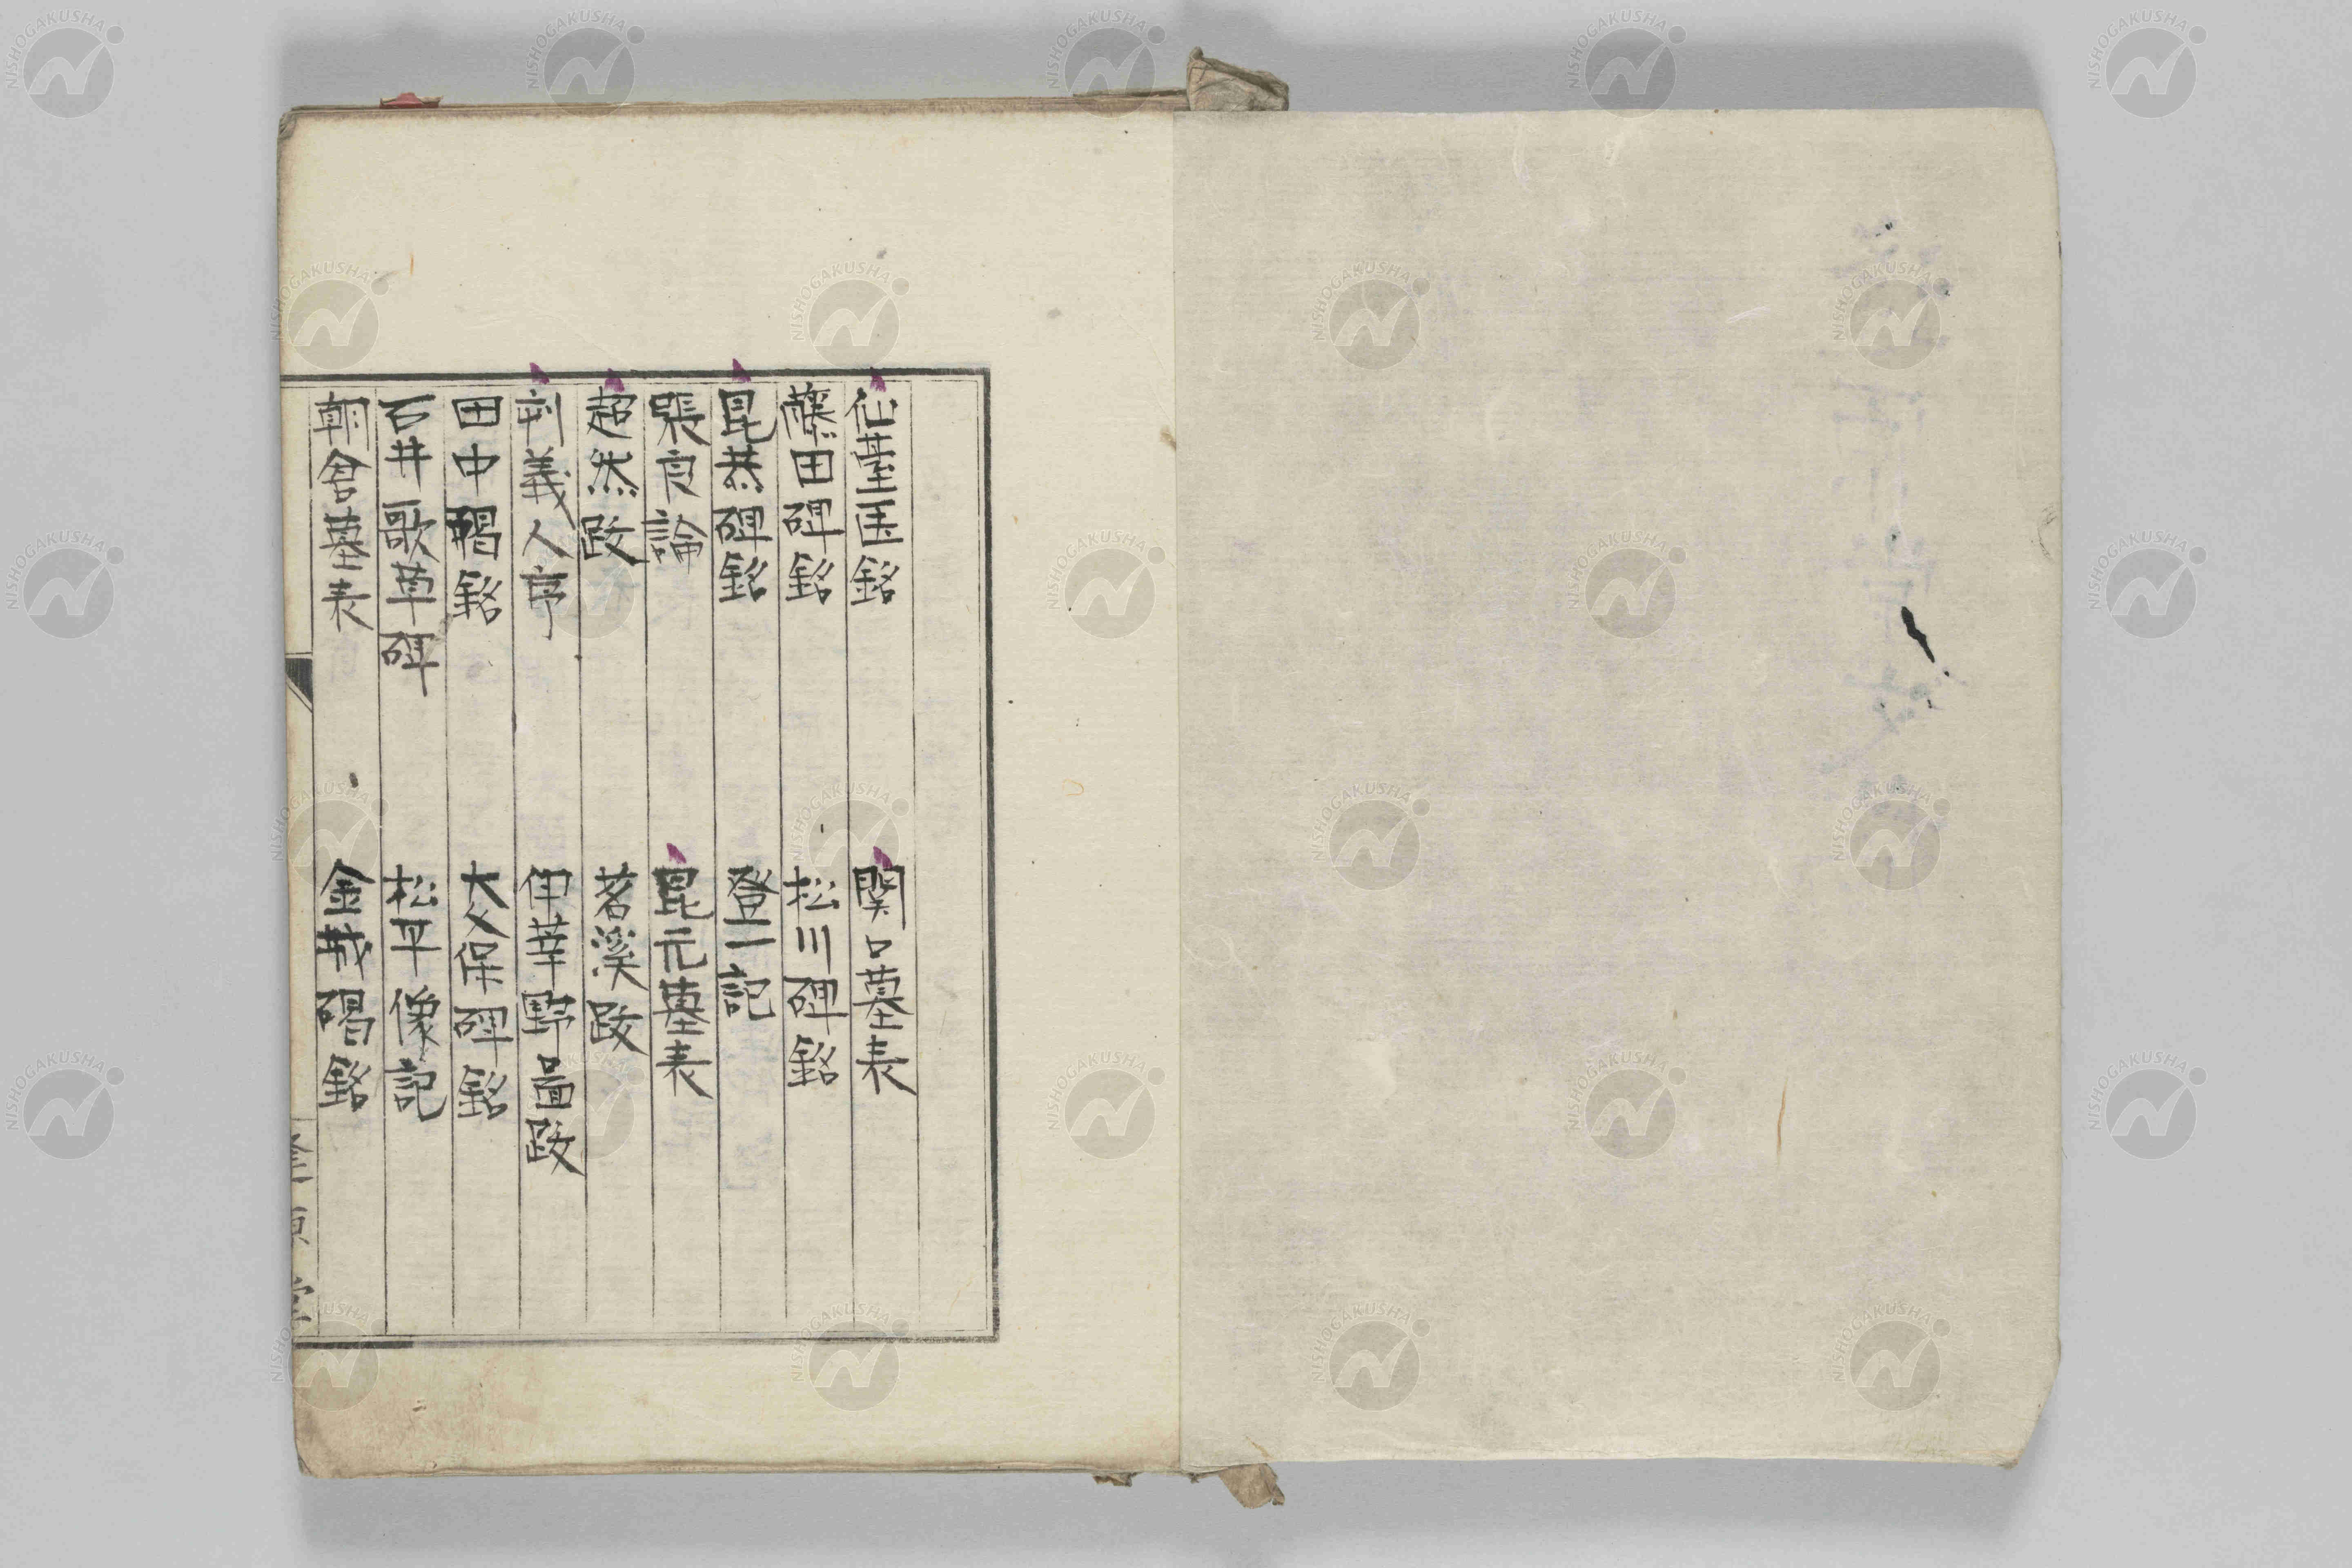 仙臺医銘
関口墓表
藤田碑銘
松川碑銘
昆恭碑銘
登二記
張良論
昆元墓表
超然跋
茗溪跋
刻義人序
伊莘野圖跋
田中碣銘
大久保碑銘
石井歌草碑
松平像記
朝倉墓表
金城碣銘